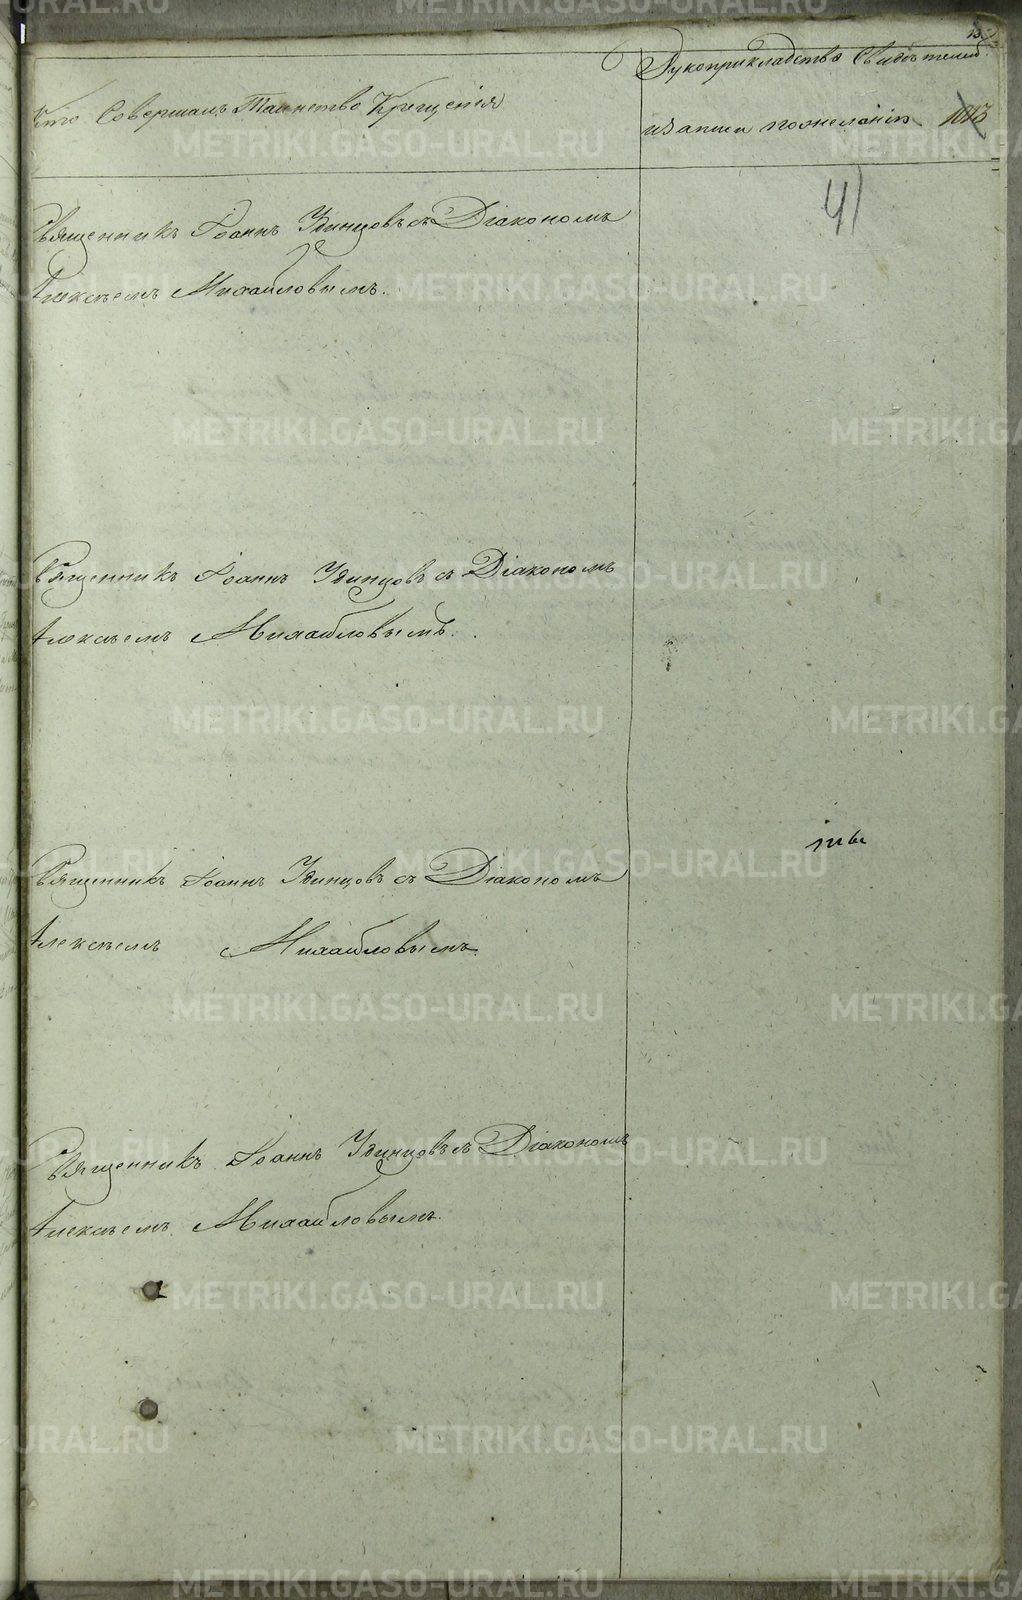 Кто Совершалъ Таинство Крещенія
Рукоприкладство Свидѣтелей
записи пожеланію
41
Священникъ Іоаннъ Удинцовъ съ Діакономъ
Алексѣемъ Михайловымъ.
Священникъ Іоаннъ Удинцовъ съ Діакономъ
Алексѣемъ Михайловымъ.
Священникъ Іоаннъ Удинцовъ съ Діакономъ
Алексѣемъ Михайловымъ.
Священникъ Іоаннъ Удинцовъ съ Діакономъ
Алексѣемъ Михайловымъ.
METRIKI.GASO-URAL.RU